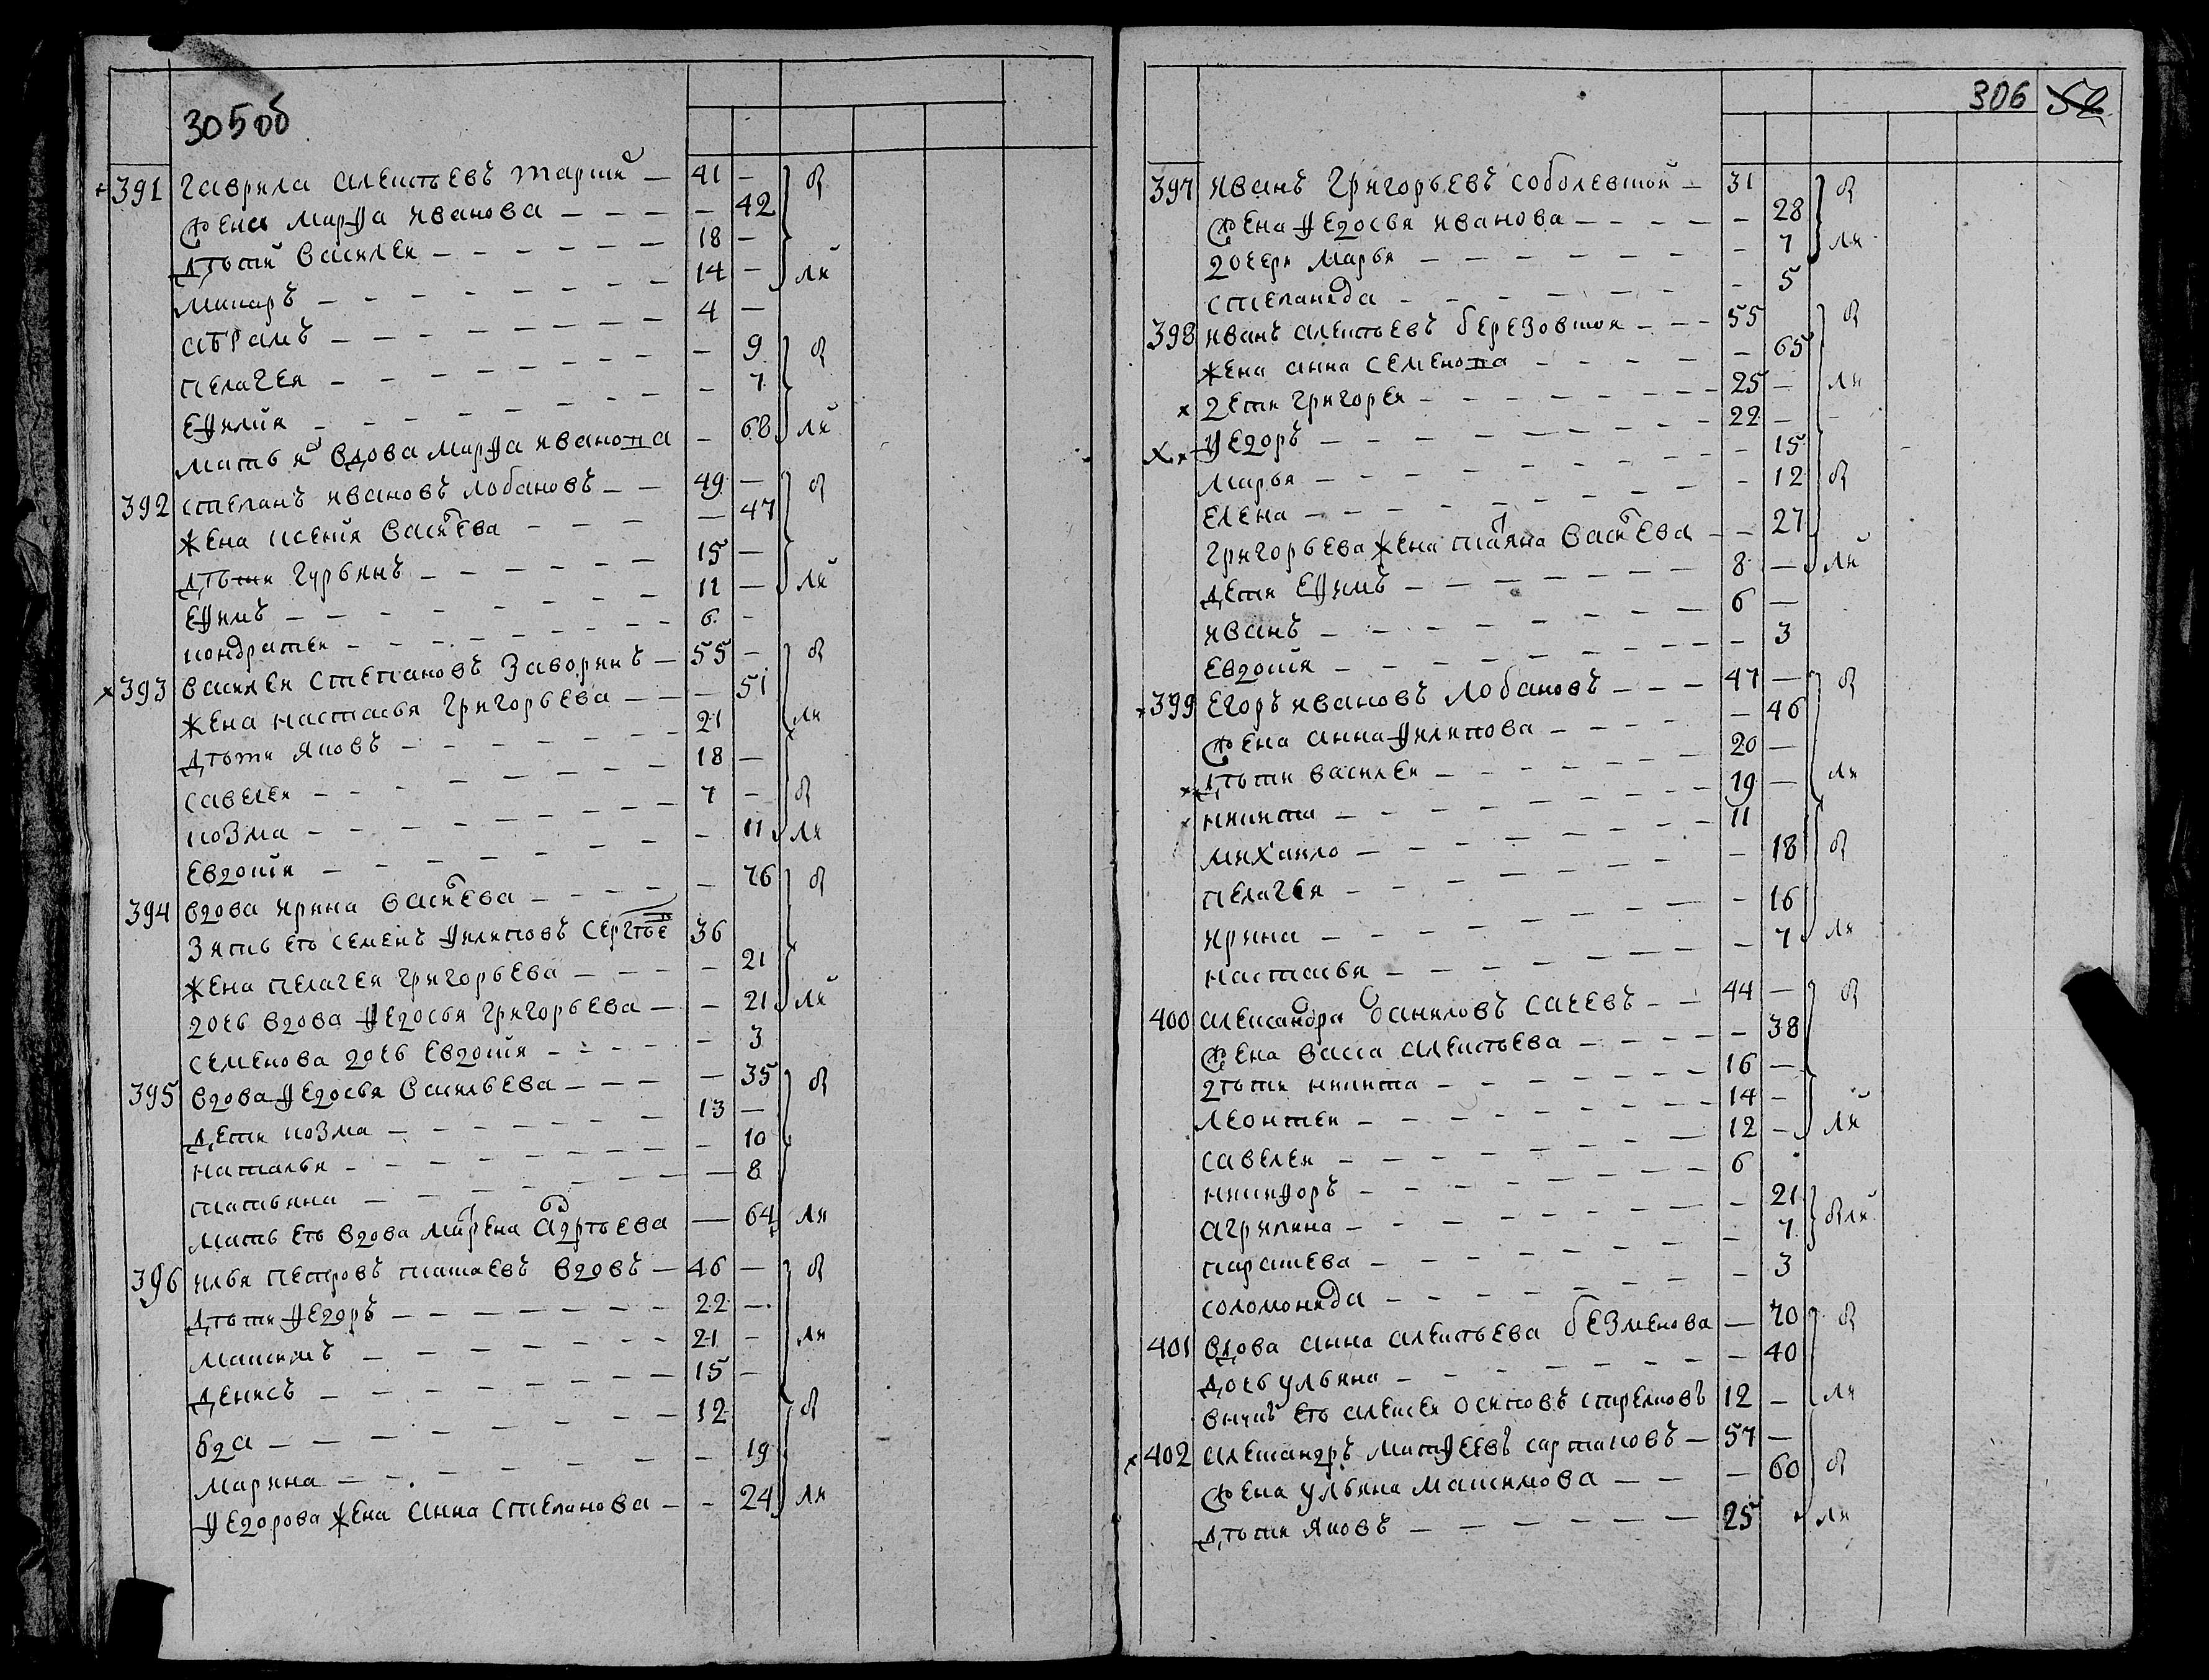 305об
391 Гаврила Алексѣевъ — 41 —
жена Марфа Иванова — — — — — 42
дѣти Василеи — — — — — 18 —
Макаръ — — — — — — 14 —
Абрамъ — — — — — — 4 —
Пелагея — — — — — — — 9
Ефимия — — — — — — — 7
мать и вдова Марфа Иванова — 68
392 Степанъ Ивановъ Лобановъ — — 49 —
жена Ксения Васильева — — — — 47
дѣти Гурьянъ — — — — — 15 —
Ефимъ — — — — — — 11 —
Кондратеи — — — — — — 6 —
393 Василеи Степановъ Заворинъ — 55 —
жена Настасья Григорьева — — — 51
дѣти Яковъ — — — — — — 21
Савелеи — — — — — — 18 —
Козма — — — — — — 7 —
Евдокия — — — — — — — 11
394 вдова Ирина Васильева — — — — — 76
зять ево Семенъ Филиповъ Сергѣе 36
жена Пелагея Григорьева — — — — 21
дочь вдова Федосья Григорьева — — 21
Семенова дочь Евдокия — — — — — 3
395 вдова Федосья Васильева — — — — 35
дети Козма — — — — — — 13 —
Наталья — — — — — — — 10
Татьяна — — — — — — — 8
мать ево вдова Матрена Авдѣева — 64
396 Илья Петровъ Татаевъ вдовъ — 46 —
дѣти Федоръ — — — — — — 22 —
Максимъ — — — — — — 21 —
Денисъ — — — — — — 15 —
— — — — — — 12
Марина — — — — — — — 19
Федорова жена Анна Степанова — — 24
306 52
397 Иванъ Григорьевъ Соболевской — 31
жена Федосья Иванова — — — — — 28
дочери Марья — — — — — — — 7
Степанида — — — — — — — 5
398 Иванъ Алексѣевъ Березовскои — — 55
жена Анна Семенова — — — — — 65
дети Григореи — — — — — — 25 —
Федоръ — — — — — — — 22 —
Марья — — — — — — — 15
Елена — — — — — — — 12
Григорьева жена Татьяна Васильева — — 27
дети Ефимъ — — — — — — 8 —
Иванъ — — — — — — 6 —
Евдокия — — — — — — — 3
399 Егоръ Ивановъ Лобановъ — — — 47 —
жена Анна Филипова — — — — 46
дѣти Василеи — — — — — — 20 —
Никита — — — — — — 19 —
Михаило — — — — — — 11
Пелагея — — — — — — — 18
Ирина — — — — — — — 16
Настасья — — — — — — — 7
400 Александра Даниловъ Сачевъ — — 44 —
жена Васса Алексѣева — — — — — 38
дѣти Никита — — — — — — 16 —
Леонтеи — — — — — — 14 —
Савелеи — — — — — — 12 —
Никифоръ — — — — — — 6
Агрипина — — — — — — — 21
Параскева — — — — — — — 7
Соломонида — — — — — — — 3
401 вдова Анна Алексѣева Безменова — 70
дочь Ульяна — — — — — — — 40
внукъ ево Алексеи Осиповъ Стрелковъ 12 —
402 Александръ Матфеевъ Сартаковъ — 57 —
жена Ульяна Максимова — — — 60
дѣти Яковъ — — — — — — 25